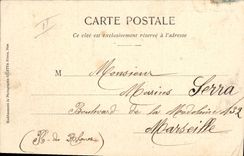 CARTE POSTALE
Ce côté est exclusivement réservé à l'adresse
M Monsieur
Marius Serra
Boulevard de la Madeleine 132
Marseille